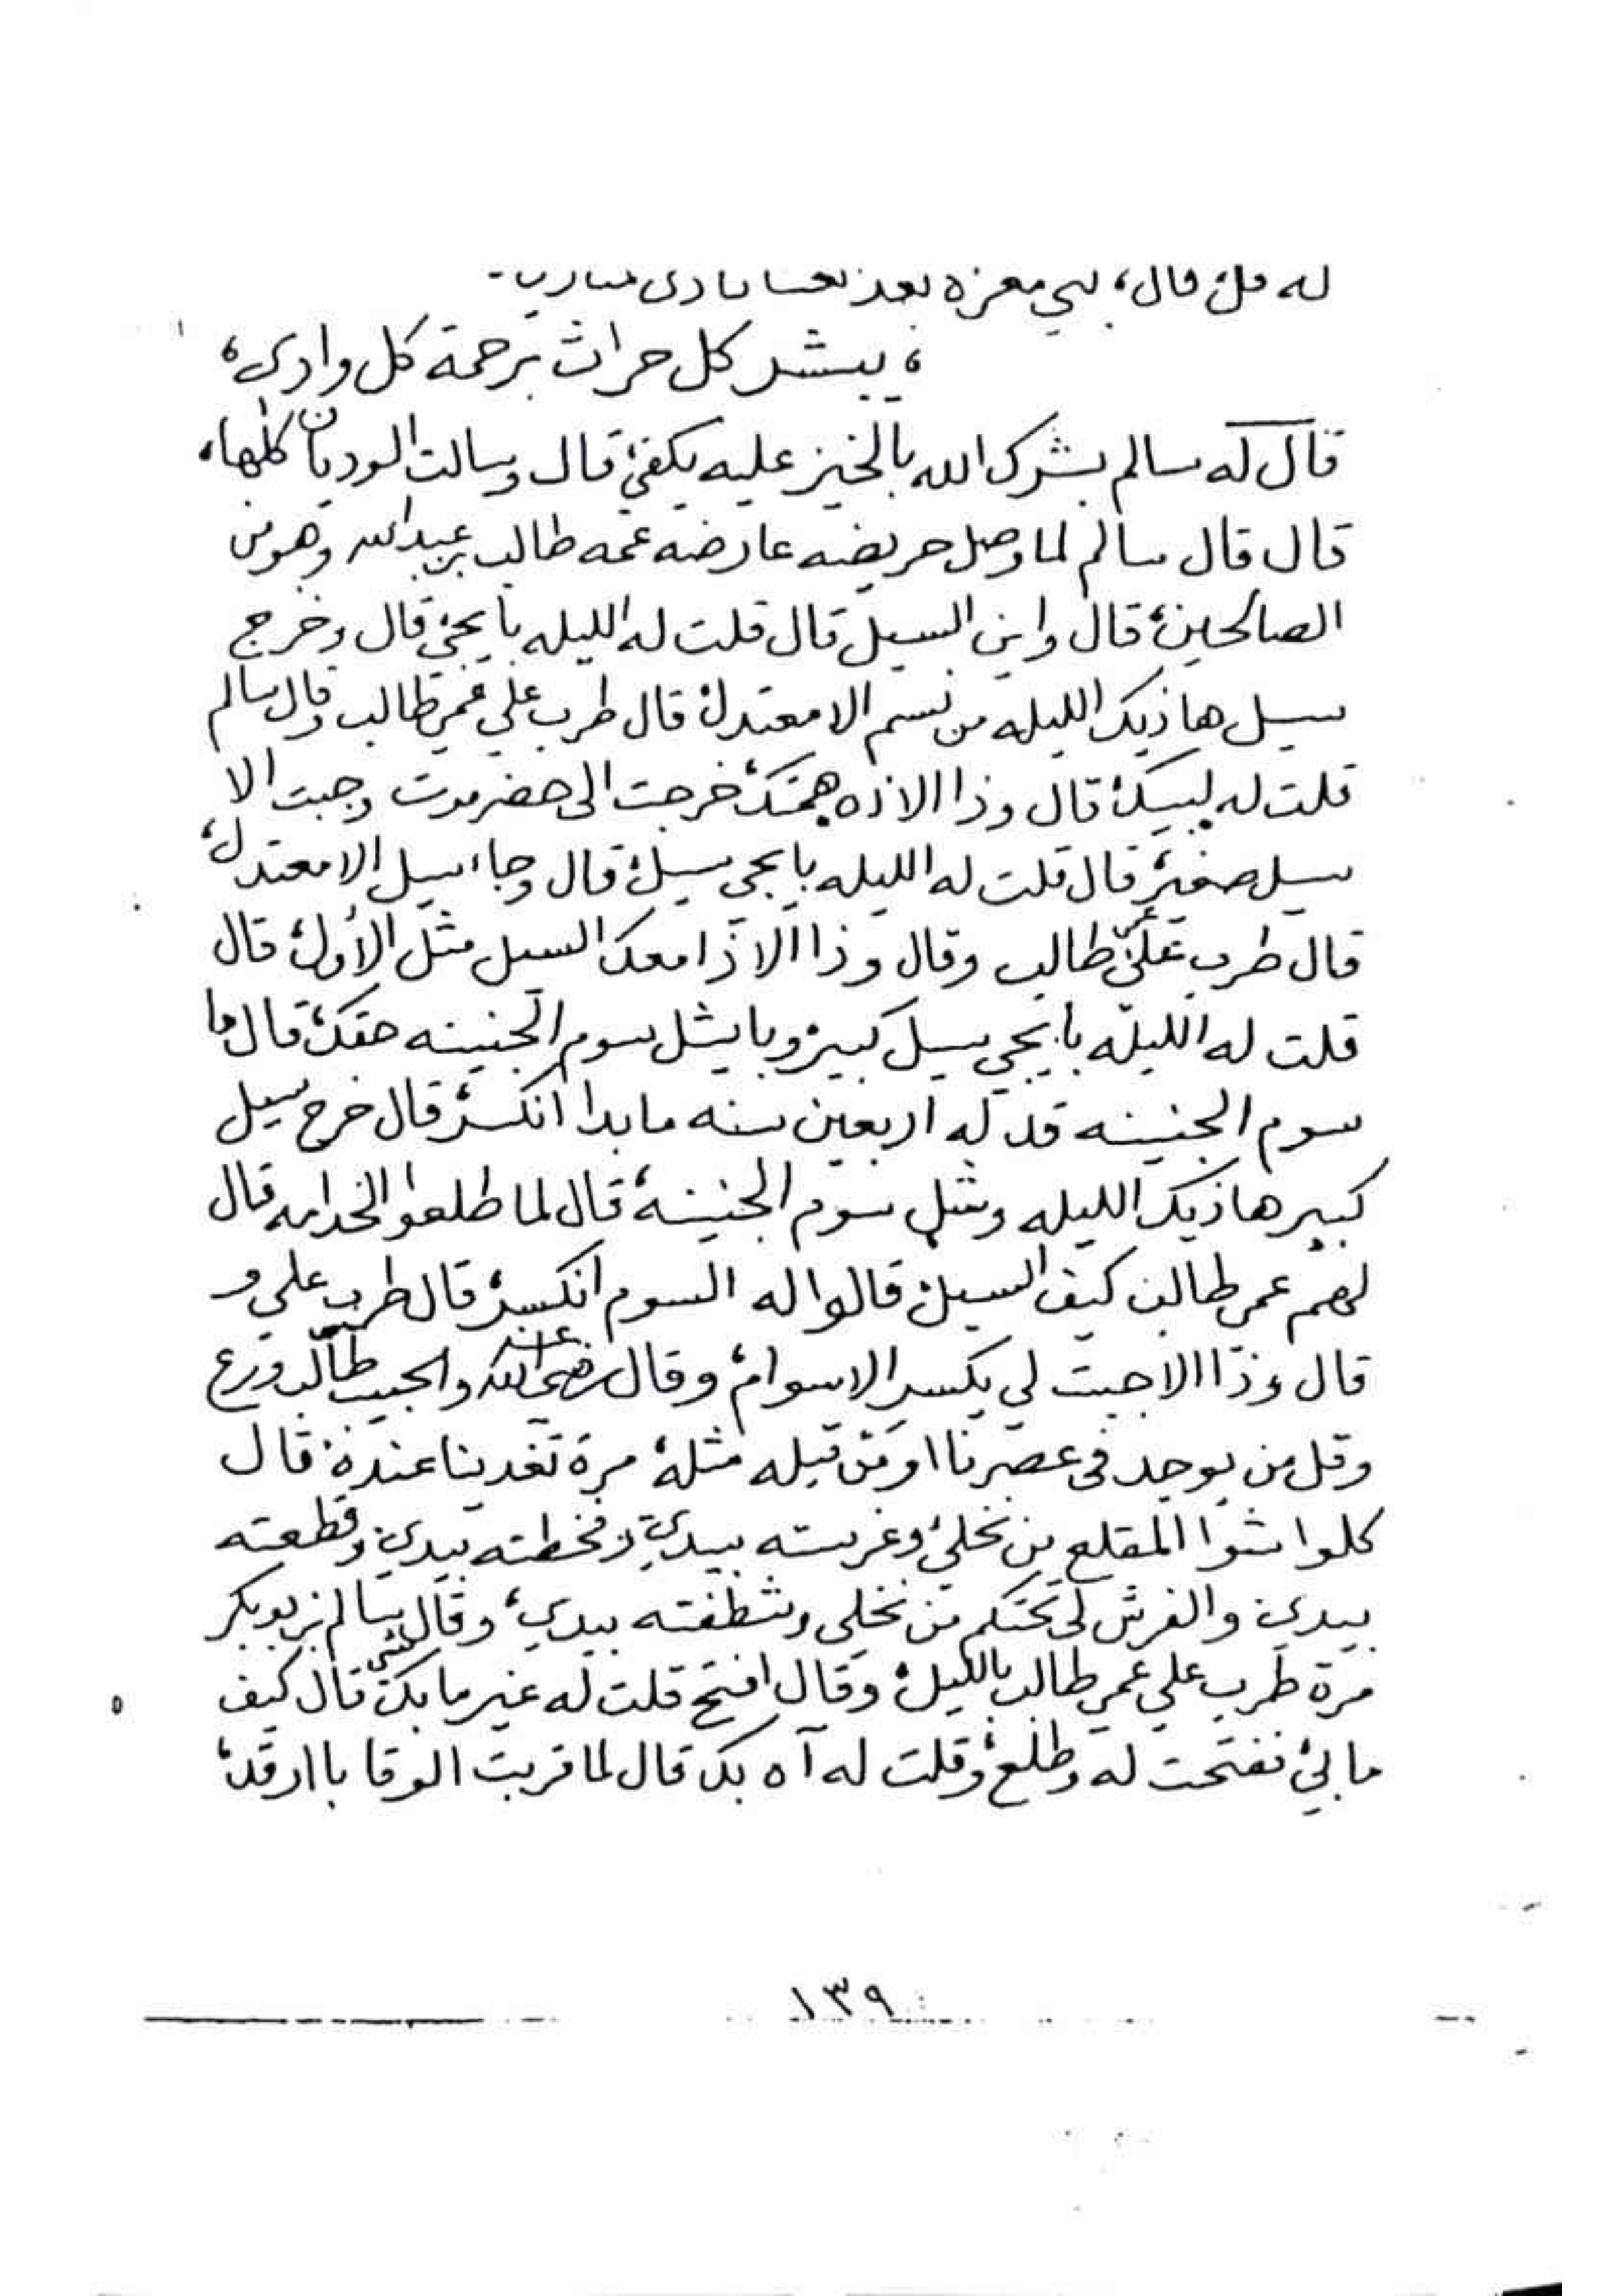 له قل قال، لي معزه بعد نعسا نادى منادي
، يبشر كل حراث برحمة كل وادي،
قال له سالم بشرك الله بالخير عليه يكفي، قال وسالت الوديان كلها،
قال قال سالم لما وصل حريضه عارضه عمه طالب بن عبدالله وهو من
الصالحين، قال واين السيل قال قلت له الليله با يجي، قال وخرج
سيل هاذيك الليله من نسم الا معتدل، قال طرب علي عمي طالب وقال سالم
قلت له لبيك، قال وذا الا ذه همتك، خرجت الى حضرموت وجبت الا
سيل صغير، قال قلت له الليله با يجي سيل، قال وجاء سيل الا معتدل،
قال طرب علي عمي طالب وقال وذا الا ذا معك السيل مثل الأول، قال
قلت له الليله با يجي سيل كبير، وبا يشل سوم الجنينه حقك، قال ما
سوم الجنينه قد له اربعين سنه ما بدا انكسر، قال خرج سيل
كبير هاذيك الليله وشل سوم الجنينة، قال لما طلعوا الخدامه قال
لهم عمي طالب كيف السيل، قالوا له السوم انكسر، قال طرب علي و
قال وذا الا جبت لي يكسر الاسوام، وقال رضي الله عنه والحبيب طالب ورع
وقل من يوجد في عصرنا او من قبله مثله، مرة تغدينا عنده، قال
كلوا شوا المقلع من نخلي، وغرسته بيدي، وفخطته بيدي، وقطعته
بيدي، والفرش لي تحتكم من نخلي وشطفته بيدي، وقال سالم بن بوبكر
مرة طرب علي عمي طالب بالليل، وقال افتح قلت له غير ما بك شي، قال كيف
ما بي، ففتحت له وطلع، وقلت له آه بك قال لما قربت الوقا با ارقد،
١٣٩